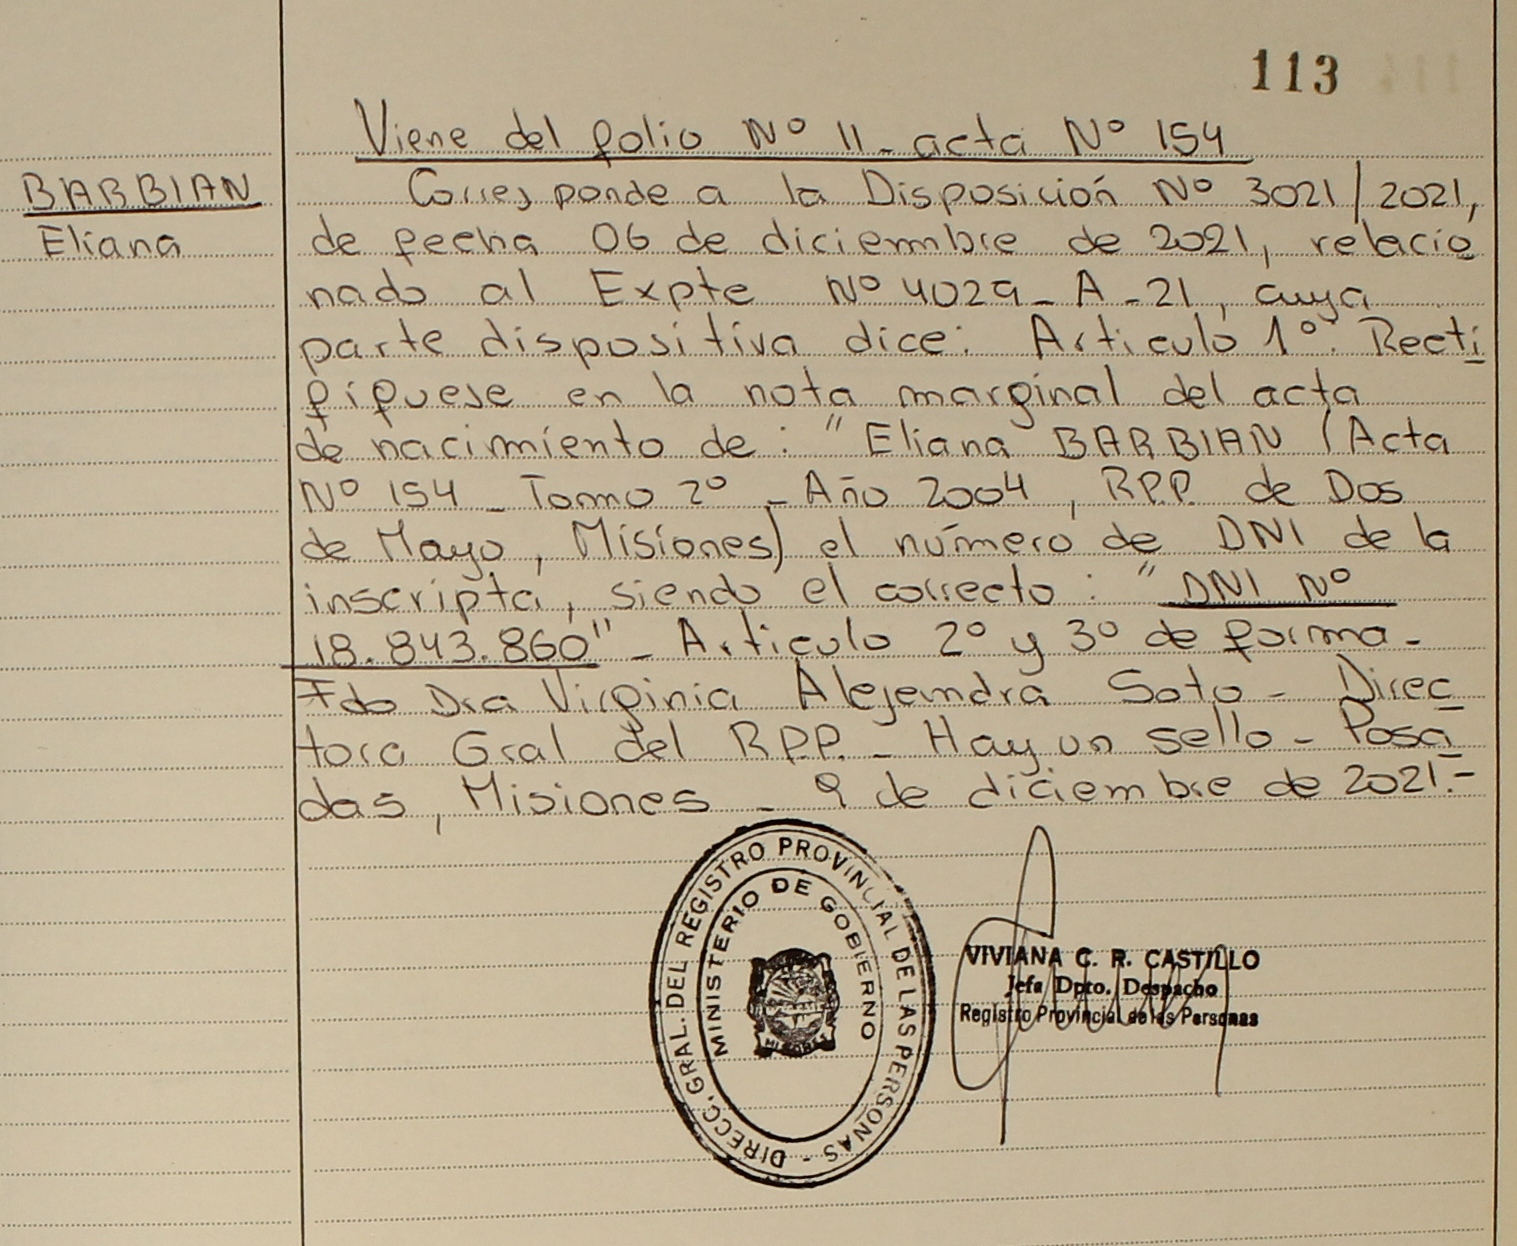 113
Viene del folio Nº 11 - acta Nº 154
BARBIAN
Eliana
Corresponde a la Disposición Nº 3021/2021,
de fecha 06 de diciembre de 2021, relacio
nado al Expte Nº 4029 - A - 21, cuya
parte dispositiva dice: Articulo 1º: Recti
fíquese en la nota marginal del acta
de nacimiento de: "Eliana BARBIAN (Acta
Nº 154 - Tomo 2º - Año 2004, R.P.P. de Dos
de Mayo, Misiones) el número de DNI de la
inscripta, siendo el correcto: "DNI Nº
18.843.860" - Articulo 2º y 3º de forma -
Fdo Dra Virginia Alejandra Soto - Direc
tora Gral del R.P.P. - Hay un sello - Posa
das, Misiones - 9 de diciembre de 2021.-
DIRECC. GRAL. DEL REGISTRO PROVINCIAL DE LAS PERSONAS -
MINISTERIO DE GOBIERNO
MISIONES
VIVIANA C. R. CASTILLO
Jefa Dpto. Despacho
Registro Provincial de las Personas